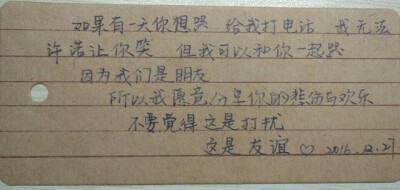 如果有一天你想哭 给我打电话 我无法
许诺让你笑 但我可以和你一起哭
因为我们是朋友
所以我愿意分享你的悲伤与欢乐
不要觉得这是打扰
这是友谊♡ 2016.12.27